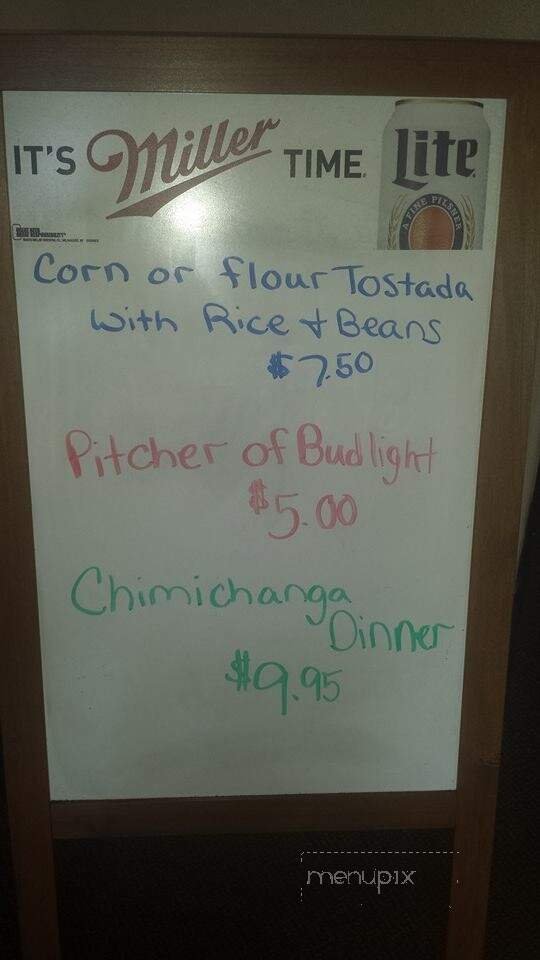 IT'S Miller TIME. Lite
A FINE PILSNER
Corn or flour Tostada
with Rice + Beans
$7.50
Pitcher of Bud light
$5.00
Chimichanga
Dinner
$9.95
menupix